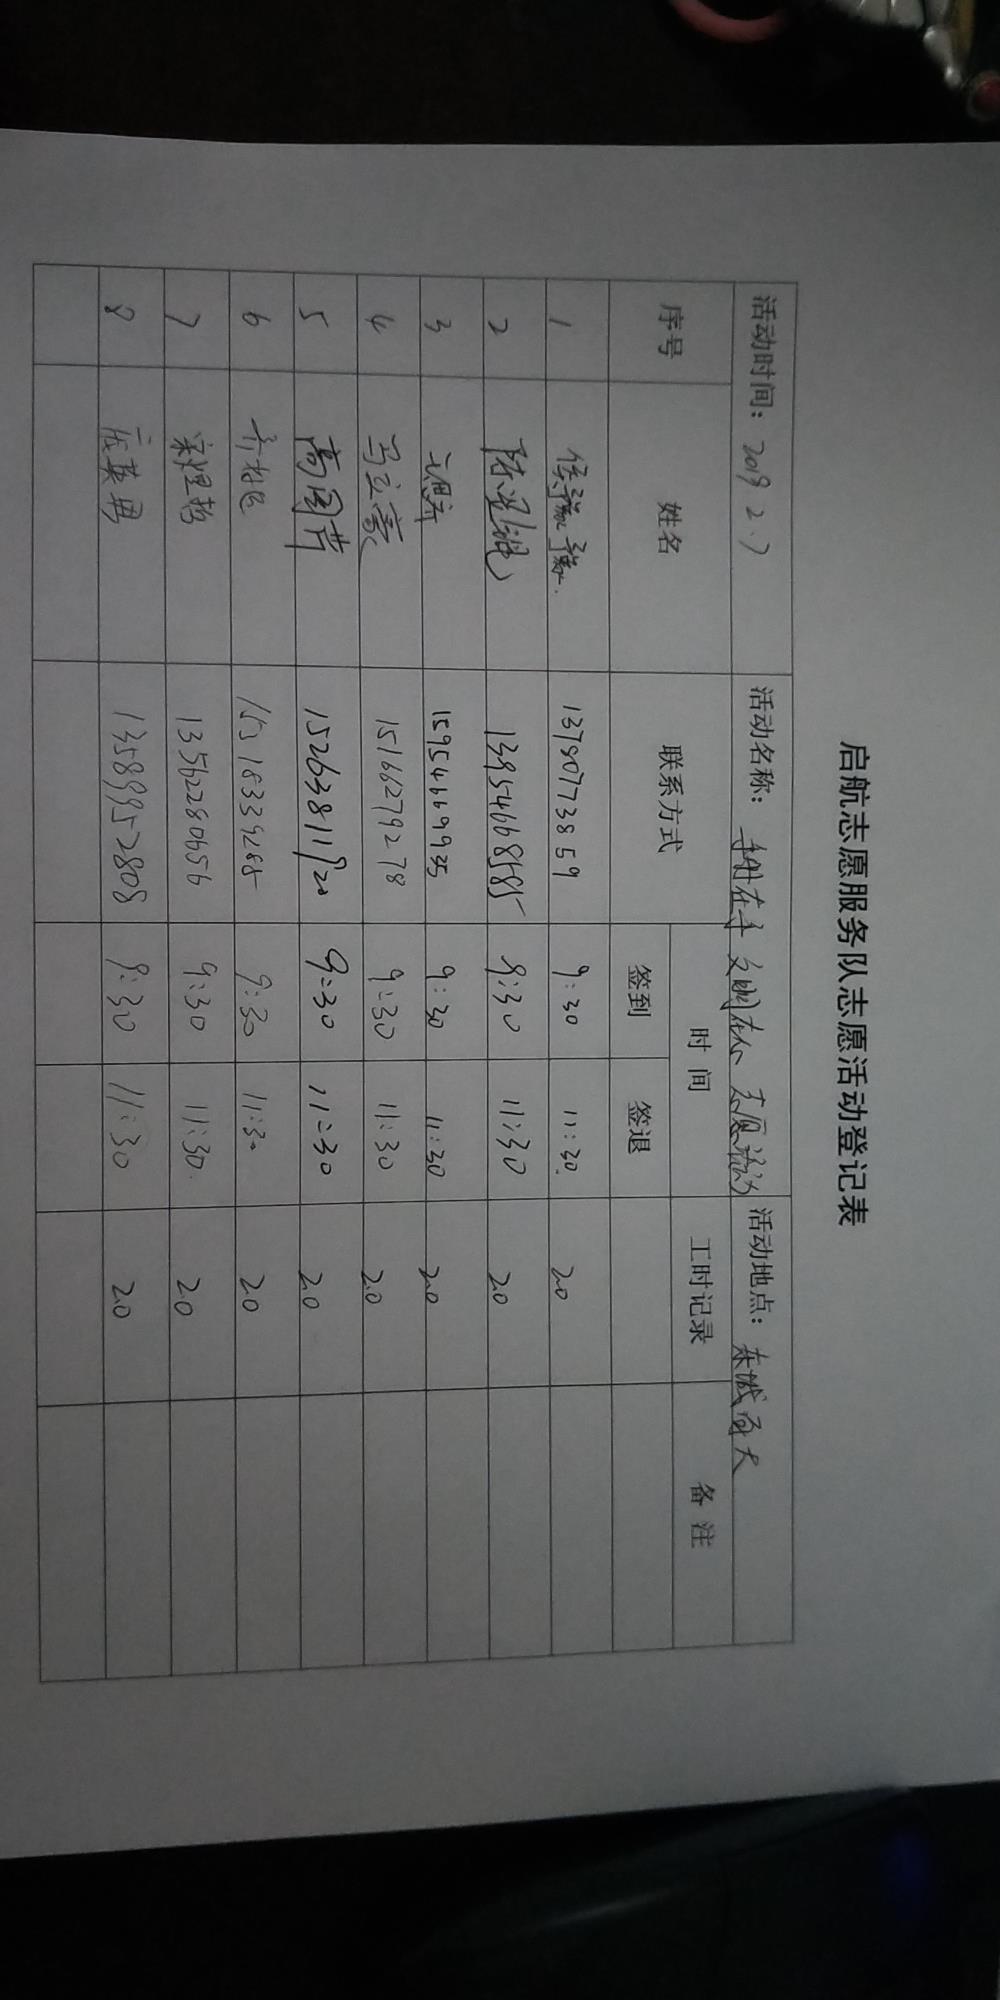 启航志愿服务队志愿活动登记表
活动时间：2019 2.7 活动名称：手册在手 文明在心 志愿活动 活动地点：东城百大
序号 姓名 联系方式 时间 工时记录 备注
签到 签退
1 13780773859 9:30 11:30 20
2 13954668585 9:30 11:30 20
3 15954669935 9:30 11:30 20
4 马立豪 15166279278 9:30 11:30 20
5 高国芹 15263811920 9:30 11:30 20
6 15318339285 9:30 11:30 20
7 13562280656 9:30 11:30 20
8 13589952808 9:30 11:30 20